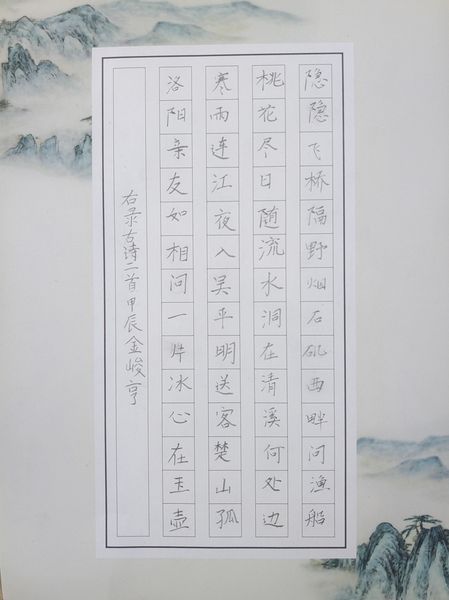 隐隐飞桥隔野烟石矶西畔问渔船
桃花尽日随流水洞在清溪何处边
寒雨连江夜入吴平明送客楚山孤
洛阳亲友如相问一片冰心在玉壶
右录古诗二首甲辰金峻亨